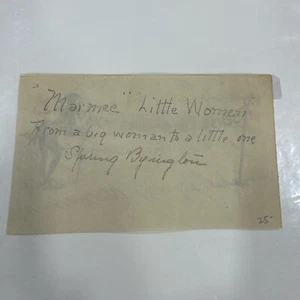 "Marmee" "Little Women"
From a big woman to a little one
Spring Byington
25